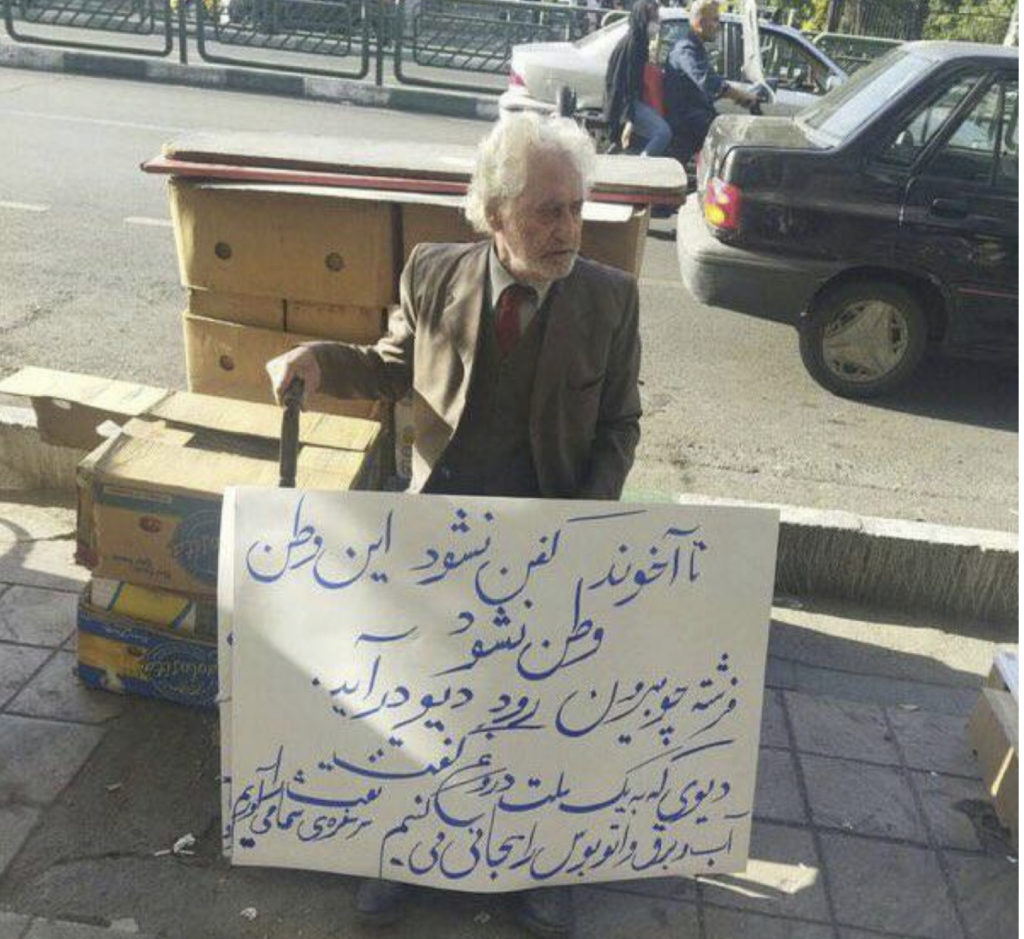 تا آخوند کفن نشود این وطن
وطن نشود
فرشته چو بیرون رود دیو درآید.
دیوی که به یک ملت دروغ گفت
آب و برق و اتوبوس را مجانی می کنیم نفت را سر سفره ی شما می آوریم